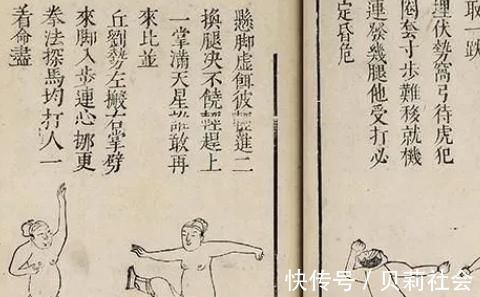 取一跌
埋伏勢窩弓待虎犯
圈套寸步難移就機
連發幾腿他受打必
定昏危
懸脚虛餌彼輕進二
換腿决不饒輕趕上
一掌滿天星誰敢再
來比並
丘劉勢左搬右掌劈
來脚入步連心挪更
拳法探馬均打人一
着命盡
快传号 / 贝莉社会